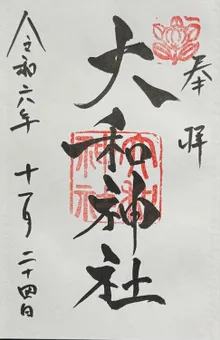 奉拝
大和神社
大和神社
令和六年 十一月 二十四日